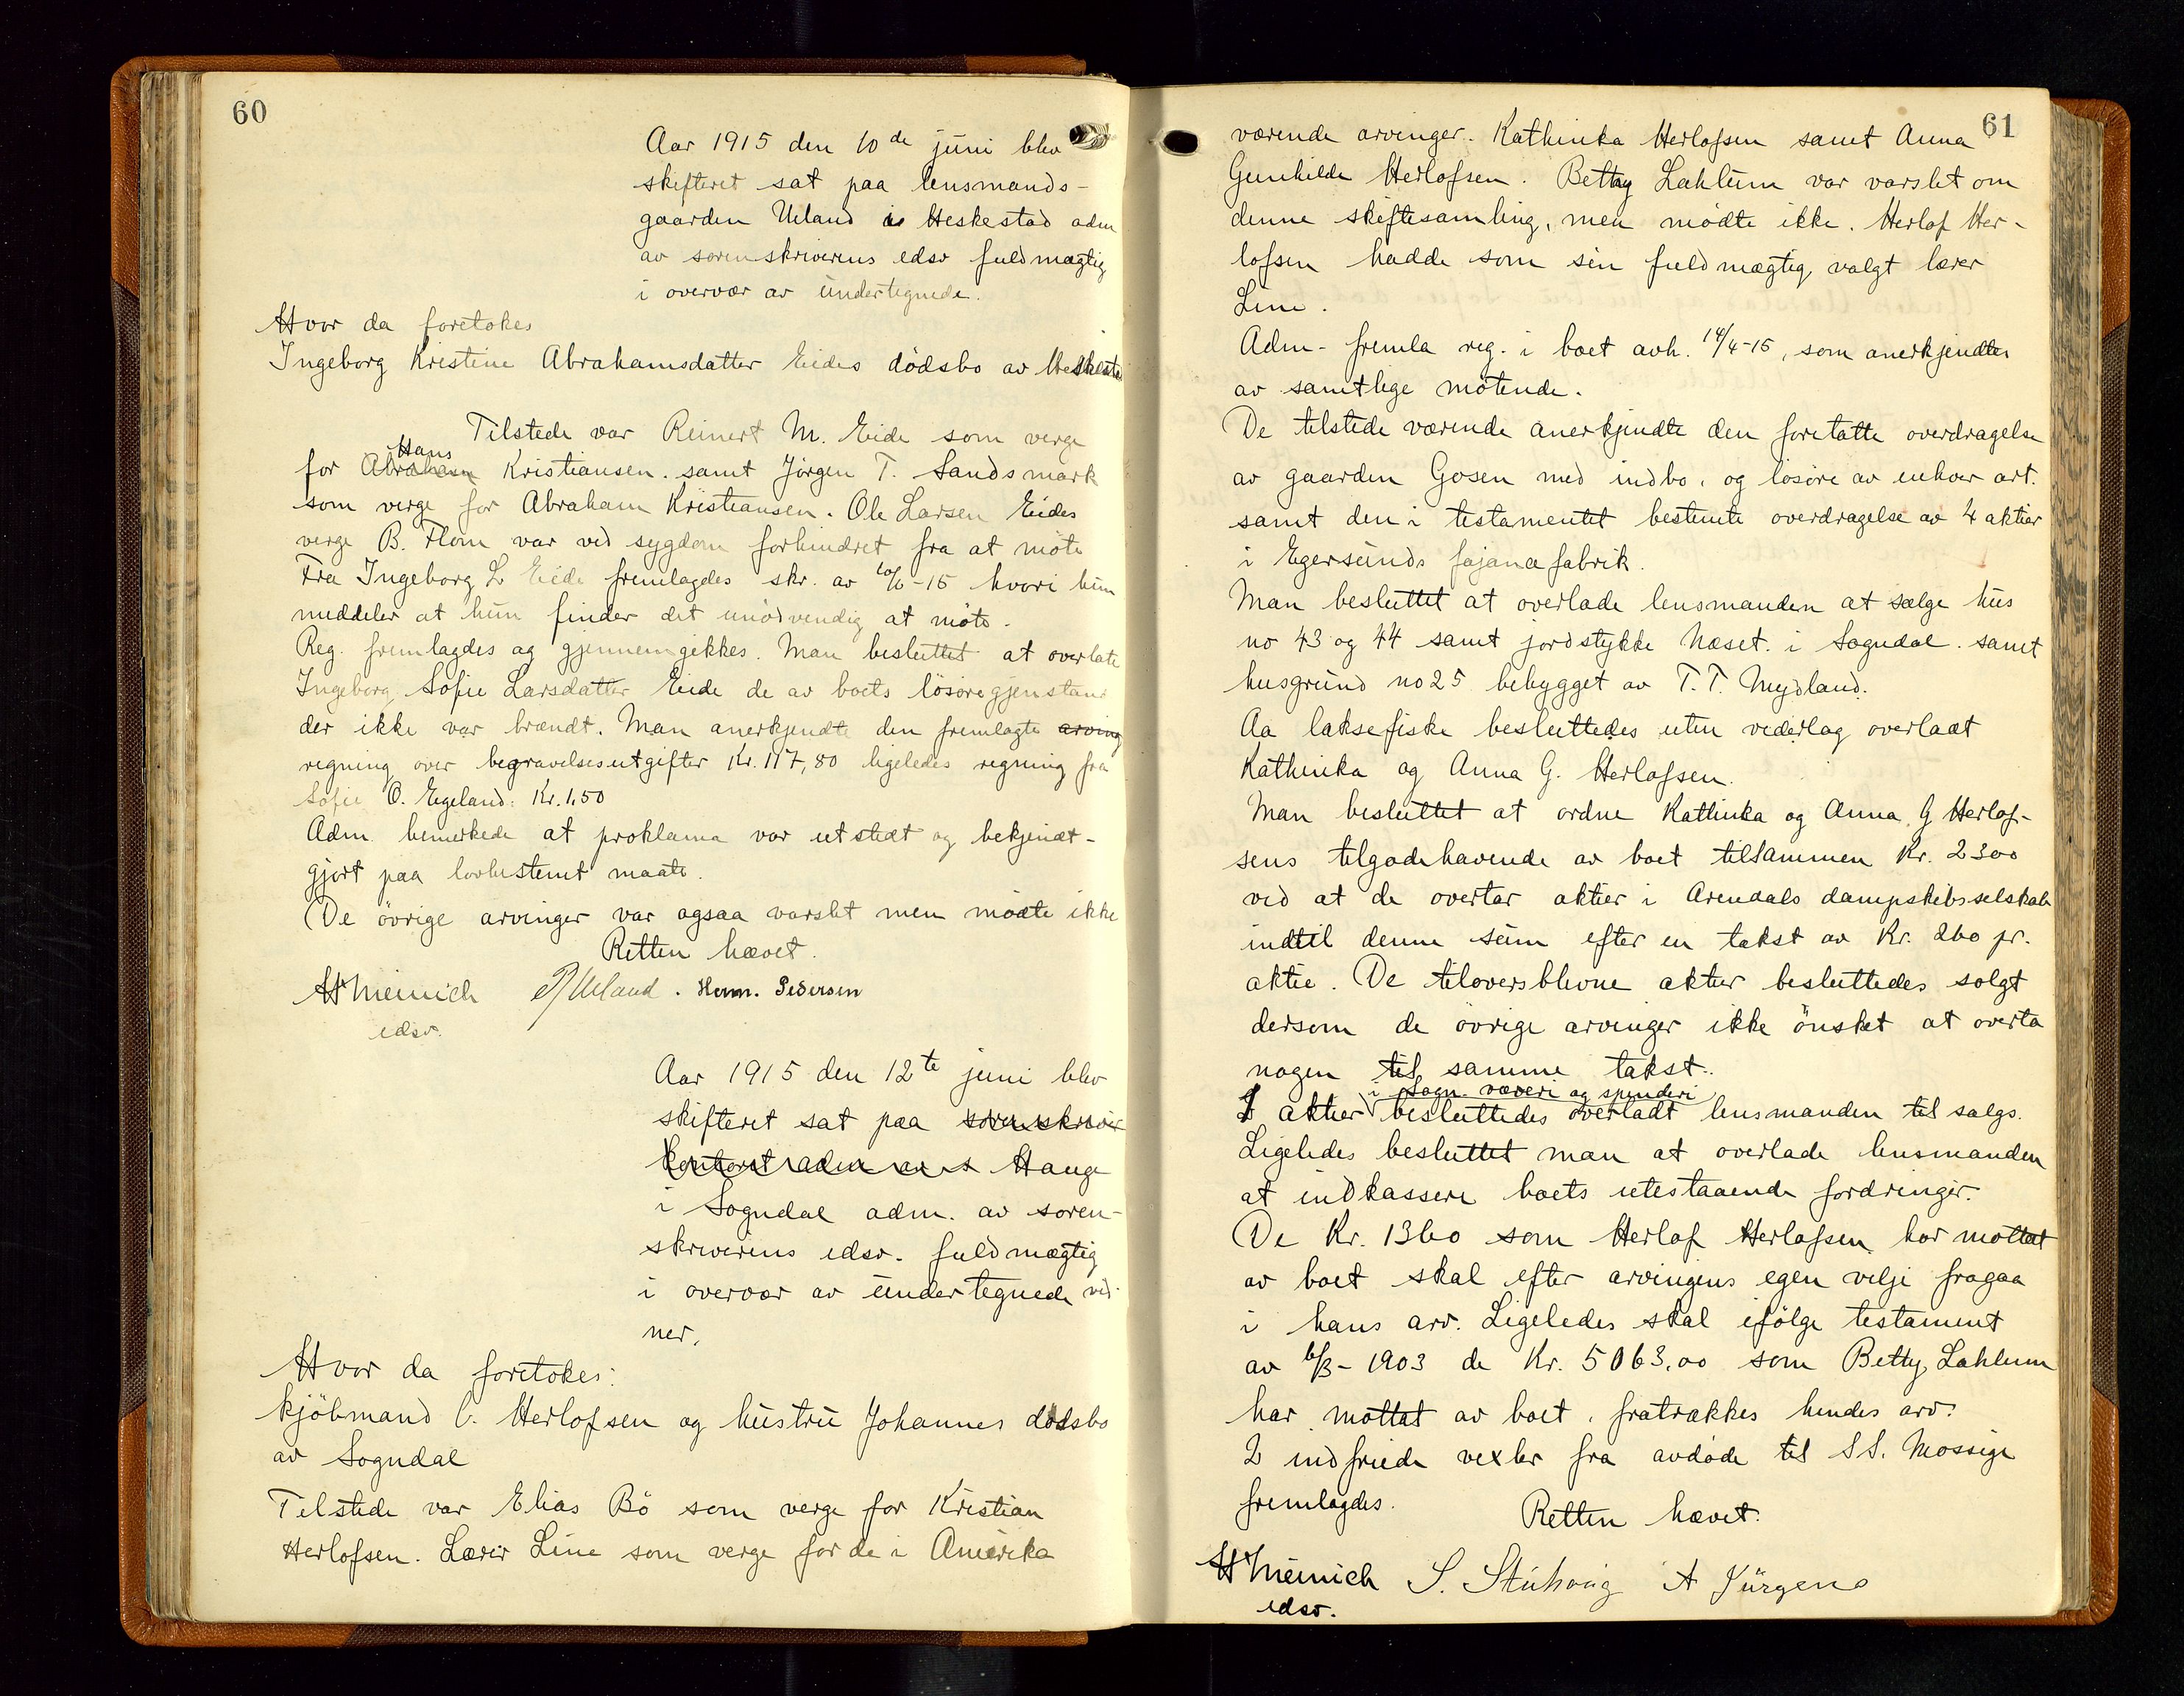 60
Aar 1915 den 10de juni blev
skifteret sat paa lensmands-
gaarden Ueland i Heskestad adm
av sorenskriverens edsv fuldmægtig
i overvær av undertegnede.
Hvor da foretokes
Ingeborg Kristine Abrahamsdatter Eides dödsbo av Heskestad
Tilstede var Reinert M. Eide som verge
Hans
for Abraham Kristiansen. samt Jörgen T. Sandsmark
som verge for Abraham Kristiansen. Ole Larsen Eides
verge B. Flom var ved sygdom forhindret fra at möte
Fra Ingeborg L Eide fremlagdes skr. av 10/6-15 hvori hun
meddeler at hun finder det unödvendig at möte.
Reg. fremlagdes og gjennemgikkes. Man besluttet at overlate
Ingeborg Sofie Larsdatter Eide de av boets lösöregjenstan
der ikke var brændt. Man anerkjendte den fremlagte arving
regning over begravelsesutgifter Kr. 117,80 ligeledes regning fra
Sofie O. Egeland: Kr. 1,50
Adm. bemerkede at proklama var utstedt og bekjendt-
gjort paa lovbestemt maate.
De övrige arvinger var ogsaa varslet men mödte ikke
Retten hævet.
H Meinich P Ueland. Herm. Pedersen
edsv.
Aar 1915 den 12te juni blev
skifteret sat paa sorenskriver
kontoret adm av s Hauge
i Sogndal adm. av soren-
skriverens edsv. fuldmægtig
i overvær av undertegnede vid-
ner.
Hvor da foretokes:
kjöbmand C. Herlofsen og hustru Johannes dödsbo
av Sogndal
Tilstede var Elias Bö som verge for Kristian
Herlofsen. Lærer Line som verge for de i Amerika
61
værende arvinger. Kathinka Herlofsen samt Anna
Gunhilde Herlofsen. Betty Lahlum var varslet om
denne skiftesamling, men mödte ikke. Herlof Her-
lofsen hadde som sin fuldmægtig valgt lærer
Line.
Adm. fremla reg. i boet avh. 14/4-15, som anerkjendtes
av samtlige mötende.
De tilstede værende anerkjendte den foretatte overdragelse
av gaarden Gosen med indbo, og lösöre av enhver art.
samt den i testamentet bestemte overdragelse av 4 aktier
i Egersunds fajancefabrik.
Man besluttet at overlade lensmanden at sælge hus
no 43 og 44 samt jordstykke Næset. i Sogndal. samt
husgrund no 25 bebygget av T. T. Mydland.
Aa laksefiske besluttedes uten vederlag overlaat
Kathinka og Anna G. Herlofsen.
Man besluttet at ordne Kathinka og Anna G Herlof-
sens tilgodehavende av boet tilsammen Kr. 2300
ved at de overtar aktier i Arendals dampskibsselskab
indtil denne sum efter en takst av Kr. 260 pr.
aktie. De tiloversblevne aktier besluttedes solgt
dersom de övrige arvinger ikke önsket at overta
nogen til samme takst.
i Sogn. væveri og spinderi
aktier besluttedes overladt lensmanden til salgs.
Ligeledes besluttet man at overlade lensmanden
at indkassere boets utestaaende fordringer.
De Kr. 1360 som Herlof Herlofsen har mottat
av boet skal efter arvingens egen vilje fragaa
i hans arv. Ligeledes skal ifölge testament
av 6/3-1903 de Kr. 5063,00 som Betty Lahlum
har mottat av boet, fratrækkes hendes arv.
2 indfriede vexler fra avdöde til S.S. Mossige
fremlagdes.
Retten hævet.
H Meinich S. Stuhaug A Jürgens
edsv.